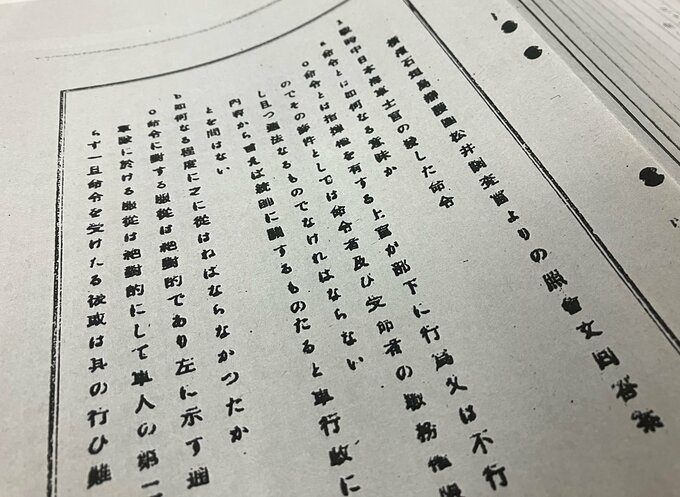 横濱石垣島辯護團松井調査官よりの照會文回答案
1戰時中日本海軍士官の發した命令
a命令とは如何なる意味か
○命令とは指揮權を有する上官が部下に行爲又は不行
のでその條件としては命令者及び受命者の職務權限
し且つ適法なるものでなければならない
内容から言えば統帥に關するものたると軍行政に
とを問はない
b如何なる程度に之に從はねばならなかつたか
○命令に對する服從は絶對的であり左に示す通
軍隊に於ける服從は絶對的にして軍人の第一
らず一旦命令を受けたる後取は其の行ひ難